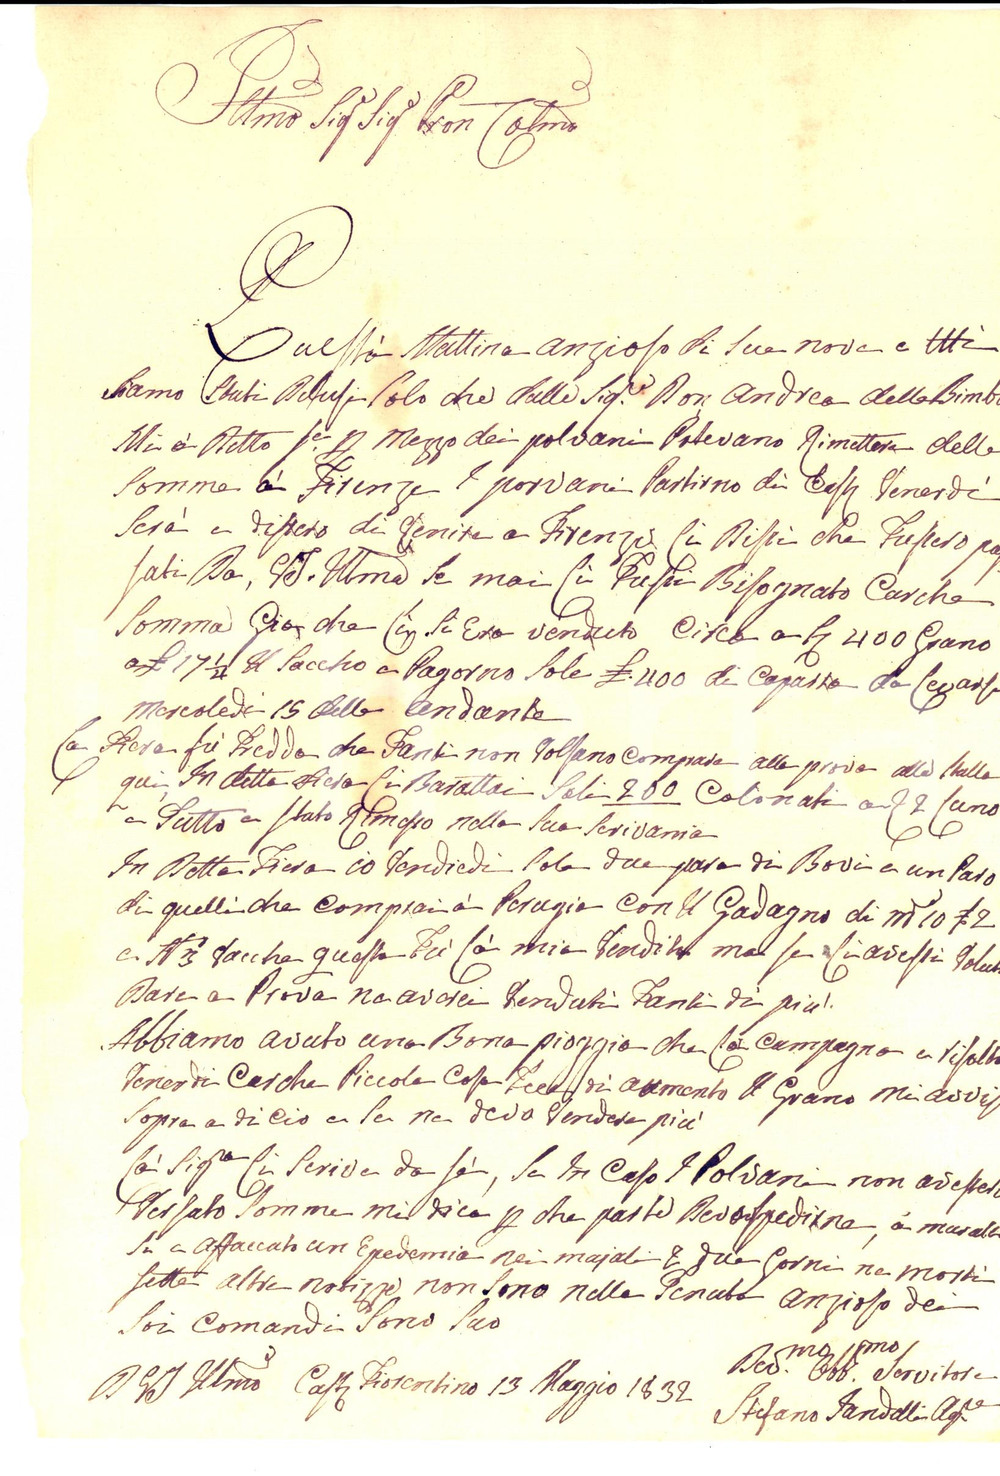 Illmo Sigr Sigr Pron Colmo
Questa Mattina anzioso di Sue nove e
Siamo Stati Delusi Solo che dalle Sigre Don Andrea della Bimba
Mi à Detto Se p mezzo dei polvani Potevano Rimettere delle
Somme à Firenze I porvani Partirno di Casa Venerdi
Sera e dissero di Venire a Firenze Li Dissi che Fussero pas
sati Da, VS. Illma Se mai Li Fussi Bisognato Carche
Somma Gia che Si Era venduto Circa a 400 Grano
a £ 17 1/4 Il Saccho e Pagorno Sole £ 400 di Caparra da
mercoledi 15 della andante
La Fiera fù Fredda che Tanti non Volsano comprare alla prova alle Stalle
qui, In detta Fiera Li Barattai Soli 200 Colonati a £ 2 L'uno
e Tutto e stato Rimesso nella Sua Scrivania
In Detta Fiera io Vendiedi Sole due para di Bovi e un Paro
di quelli che comprai à Perugia con Il Gadagno di 10 £ 2
e N 3 Vacche questa Fù La mia Vendita ma se Li avessi Voluti
Dare a Prova ne averei Venduti Tanti di più
Abbiamo avuto una Bona pioggia che La Campagna e risolta
Venerdi Carche Piccola Cosa Fece di aumento Il Grano mi avvisi
Sopra a di Cio e Se ne devo Vendere più
La Sigra Li Scrive da Sé, Se In Caso I Polvani non avessero
Versato Somme mi dica p che parte Devo Spedirne, à
Si e affaccato un Epedemia nei majali E due Gorni ne morti
sette altre notizzie non Sono nella Tenuta anzioso dei
Soi Comandi Sono Suo
D VS Illma Casl Fiorentino 13 Maggio 1832
Devmo Obbmo Servitore
Stefano Tandelli Agte